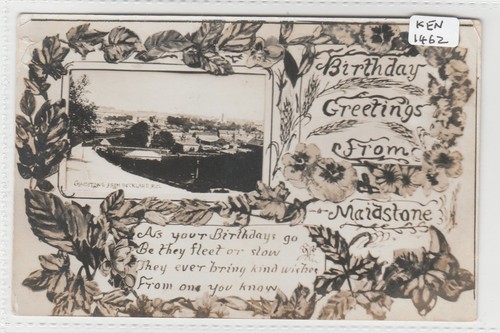 KEN
1462
Birthday
Greetings
From
Maidstone
As your Birthdays go
Be they fleet or slow
They ever bring kind wishes
From one you know